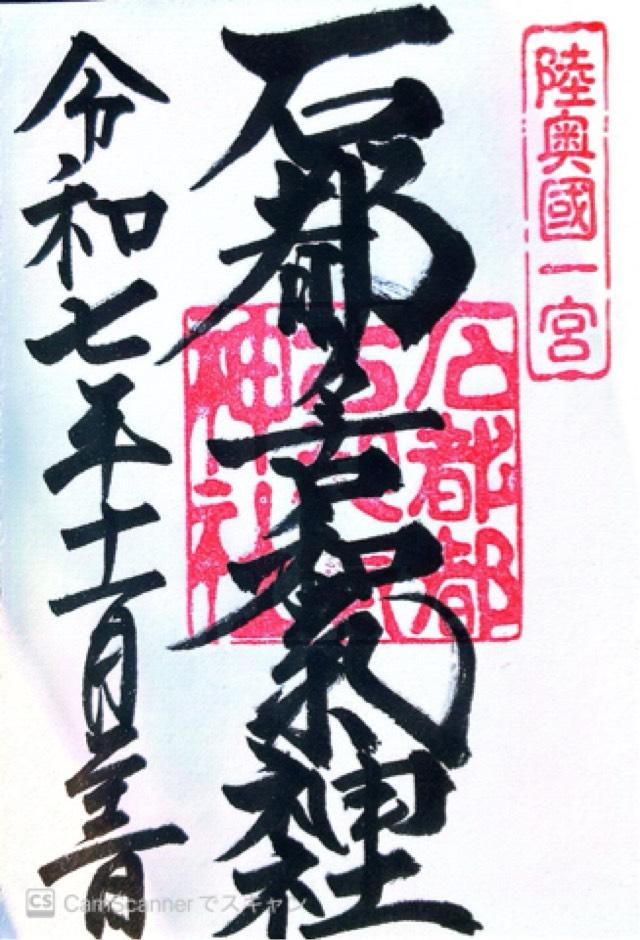 陸奥國一宮
石都々古和氣神社
石都都
古和氣
神社
令和七年十一月
CS CamScannerでスキャン